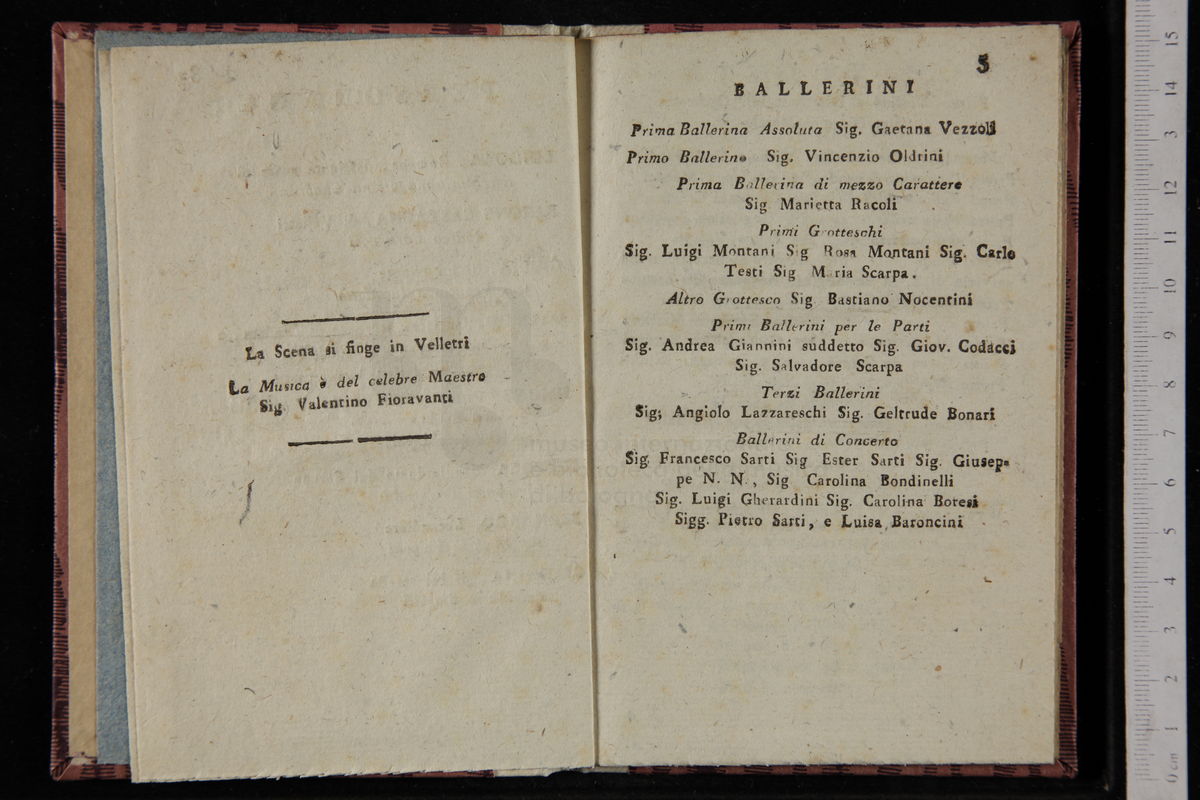 La Scena si finge in Velletri
La Musica è del celebre Maestro
Sig. Valentino Fioravanti
5
BALLERINI
Prima Ballerina Assoluta Sig. Gaetana Vezzoli
Primo Ballerino Sig. Vincenzio Oldrini
Prima Ballerina di mezzo Carattere
Sig Marietta Racoli
Primi Grotteschi
Sig. Luigi Montani Sig Rosa Montani Sig. Carlo
Testi Sig Maria Scarpa.
Altro Grottesco Sig. Bastiano Nocentini
Primi Ballerini per le Parti
Sig. Andrea Giannini suddetto Sig. Giov. Codacci
Sig. Salvadore Scarpa
Terzi Ballerini
Sig; Angiolo Lazzareschi Sig. Geltrude Bonari
Ballerini di Concerto
Sig. Francesco Sarti Sig Ester Sarti Sig. Giusep-
pe N. N., Sig Carolina Bondinelli
Sig. Luigi Gherardini Sig. Carolina Boresi
Sigg. Pietro Sarti, e Luisa Baroncini
0 cm 1 2 3 4 5 6 7 8 9 10 11 12 3 14 15